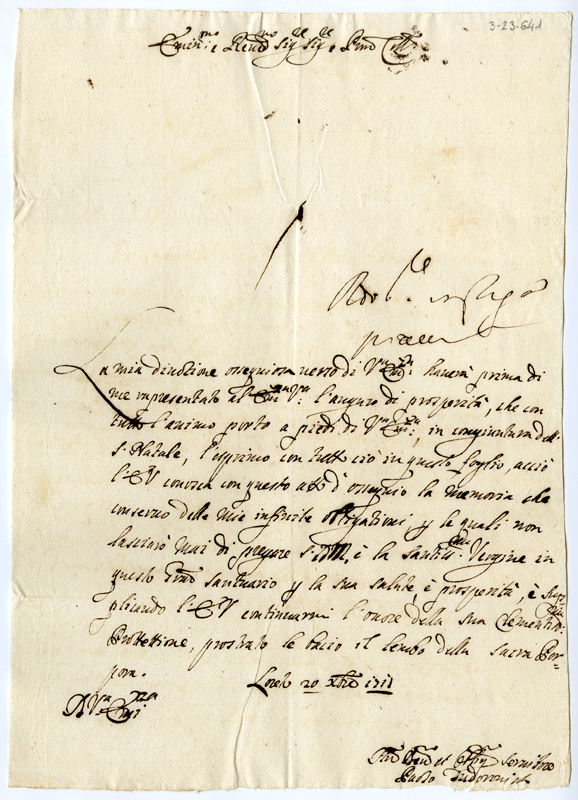 3-23-641
Emin.mo e Rev.mo Sig.re Sig.re e Pron
La mia divotione ossequiosa verso di V.ra Em.za haverà prima di
me rapresentato al Em.za V.ra l'augurio di prosperità, che con
tutto l'animo porto a piedi di V.ra Em.za, in congiuntura del
S. Natale, l'esprimo con tutto ciò in questo foglio, acciò
l'E V conosca con questo atto d'ossequio la memoria che
conservo delle mie infinite obligationi, p le quali non
lasciarò mai di pregare S. D. M, è la santiss.ma Vergine in
questo santuario p la sua salute, è prosperità, è sup
plicando l'E V continuarmi l'onore della sua Clementiss.ma
Prottettione, prostrato le bacio il lembo della sacra Por=
pora.
Loreto 20 Xbre 1711
D V.ra Em.za
Servitore
Paolo